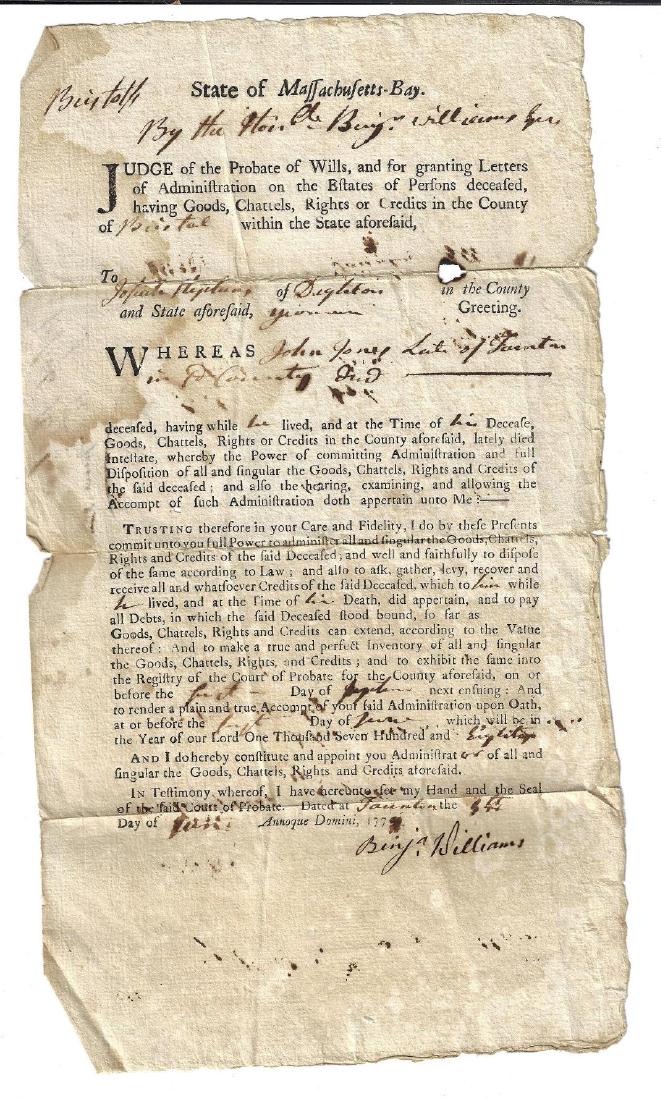 Bristol ss
State of Maſſachuſetts-Bay.
By the Honble Benja. Williams Eſqr
JUDGE of the Probate of Wills, and for granting Letters
of Adminiſtration on the Eſtates of Perſons deceaſed,
having Goods, Chattels, Rights or Credits in the County
of Bristol within the State aforeſaid,
To
Josiah Stephens of Dighton in the County
and State aforeſaid, yeoman Greeting.
WHEREAS John Jones Late of Taunton
in sd County Decd
deceaſed, having while he lived, and at the Time of his Deceaſe,
Goods, Chattels, Rights or Credits in the County aforeſaid, lately died
Inteſtate, whereby the Power of committing Adminiſtration and full
Diſpoſition of all and ſingular the Goods, Chattels, Rights and Credits of
the ſaid deceaſed; and alſo the hearing, examining, and allowing the
Accompt of ſuch Adminiſtration doth appertain unto Me:
TRUSTING therefore in your Care and Fidelity, I do by theſe Preſents
commit unto you full Power to adminiſter all and ſingular the Goods, Chattels,
Rights and Credits of the ſaid Deceaſed; and well and faithfully to diſpoſe
of the ſame according to Law; and alſo to aſk, gather, levy, recover and
receive all and whatſoever Credits of the ſaid Deceaſed, which to him while
he lived, and at the Time of his Death, did appertain, and to pay
all Debts, in which the ſaid Deceaſed ſtood bound, ſo far as
Goods, Chattels, Rights and Credits can extend, according to the Value
thereof: And to make a true and perfect Inventory of all and ſingular
the Goods, Chattels, Rights, and Credits; and to exhibit the ſame into
the Regiſtry of the Court of Probate for the County aforeſaid, on or
before the first Day of Septem next enſuing: And
to render a plain and true Accompt of your ſaid Adminiſtration upon Oath,
at or before the first Day of June, which will be in
the Year of our Lord One Thouſand Seven Hundred and Eighty
AND I do hereby conſtitute and appoint you Adminiſtrator of all and
ſingular the Goods, Chattels, Rights and Credits aforeſaid.
IN Teſtimony whereof, I have hereunto ſet my Hand and the Seal
of the ſaid Court of Probate. Dated at Taunton the
Day of June Annoque Domini, 1779
Benja. Williams